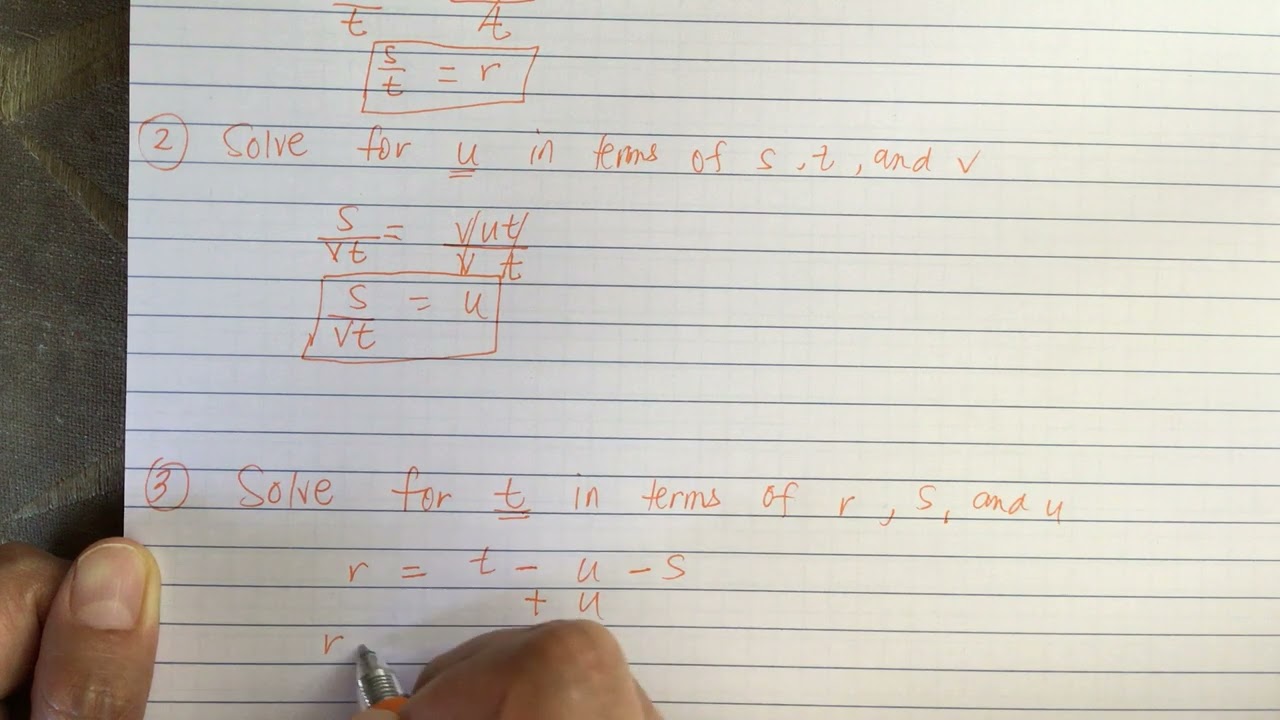 t t
s/t = r
② Solve for u in terms of s, t, and v
s/vt = vut/v t
s/vt = u
③ Solve for t in terms of r, s, and u
r = t - u - s
+ u
r